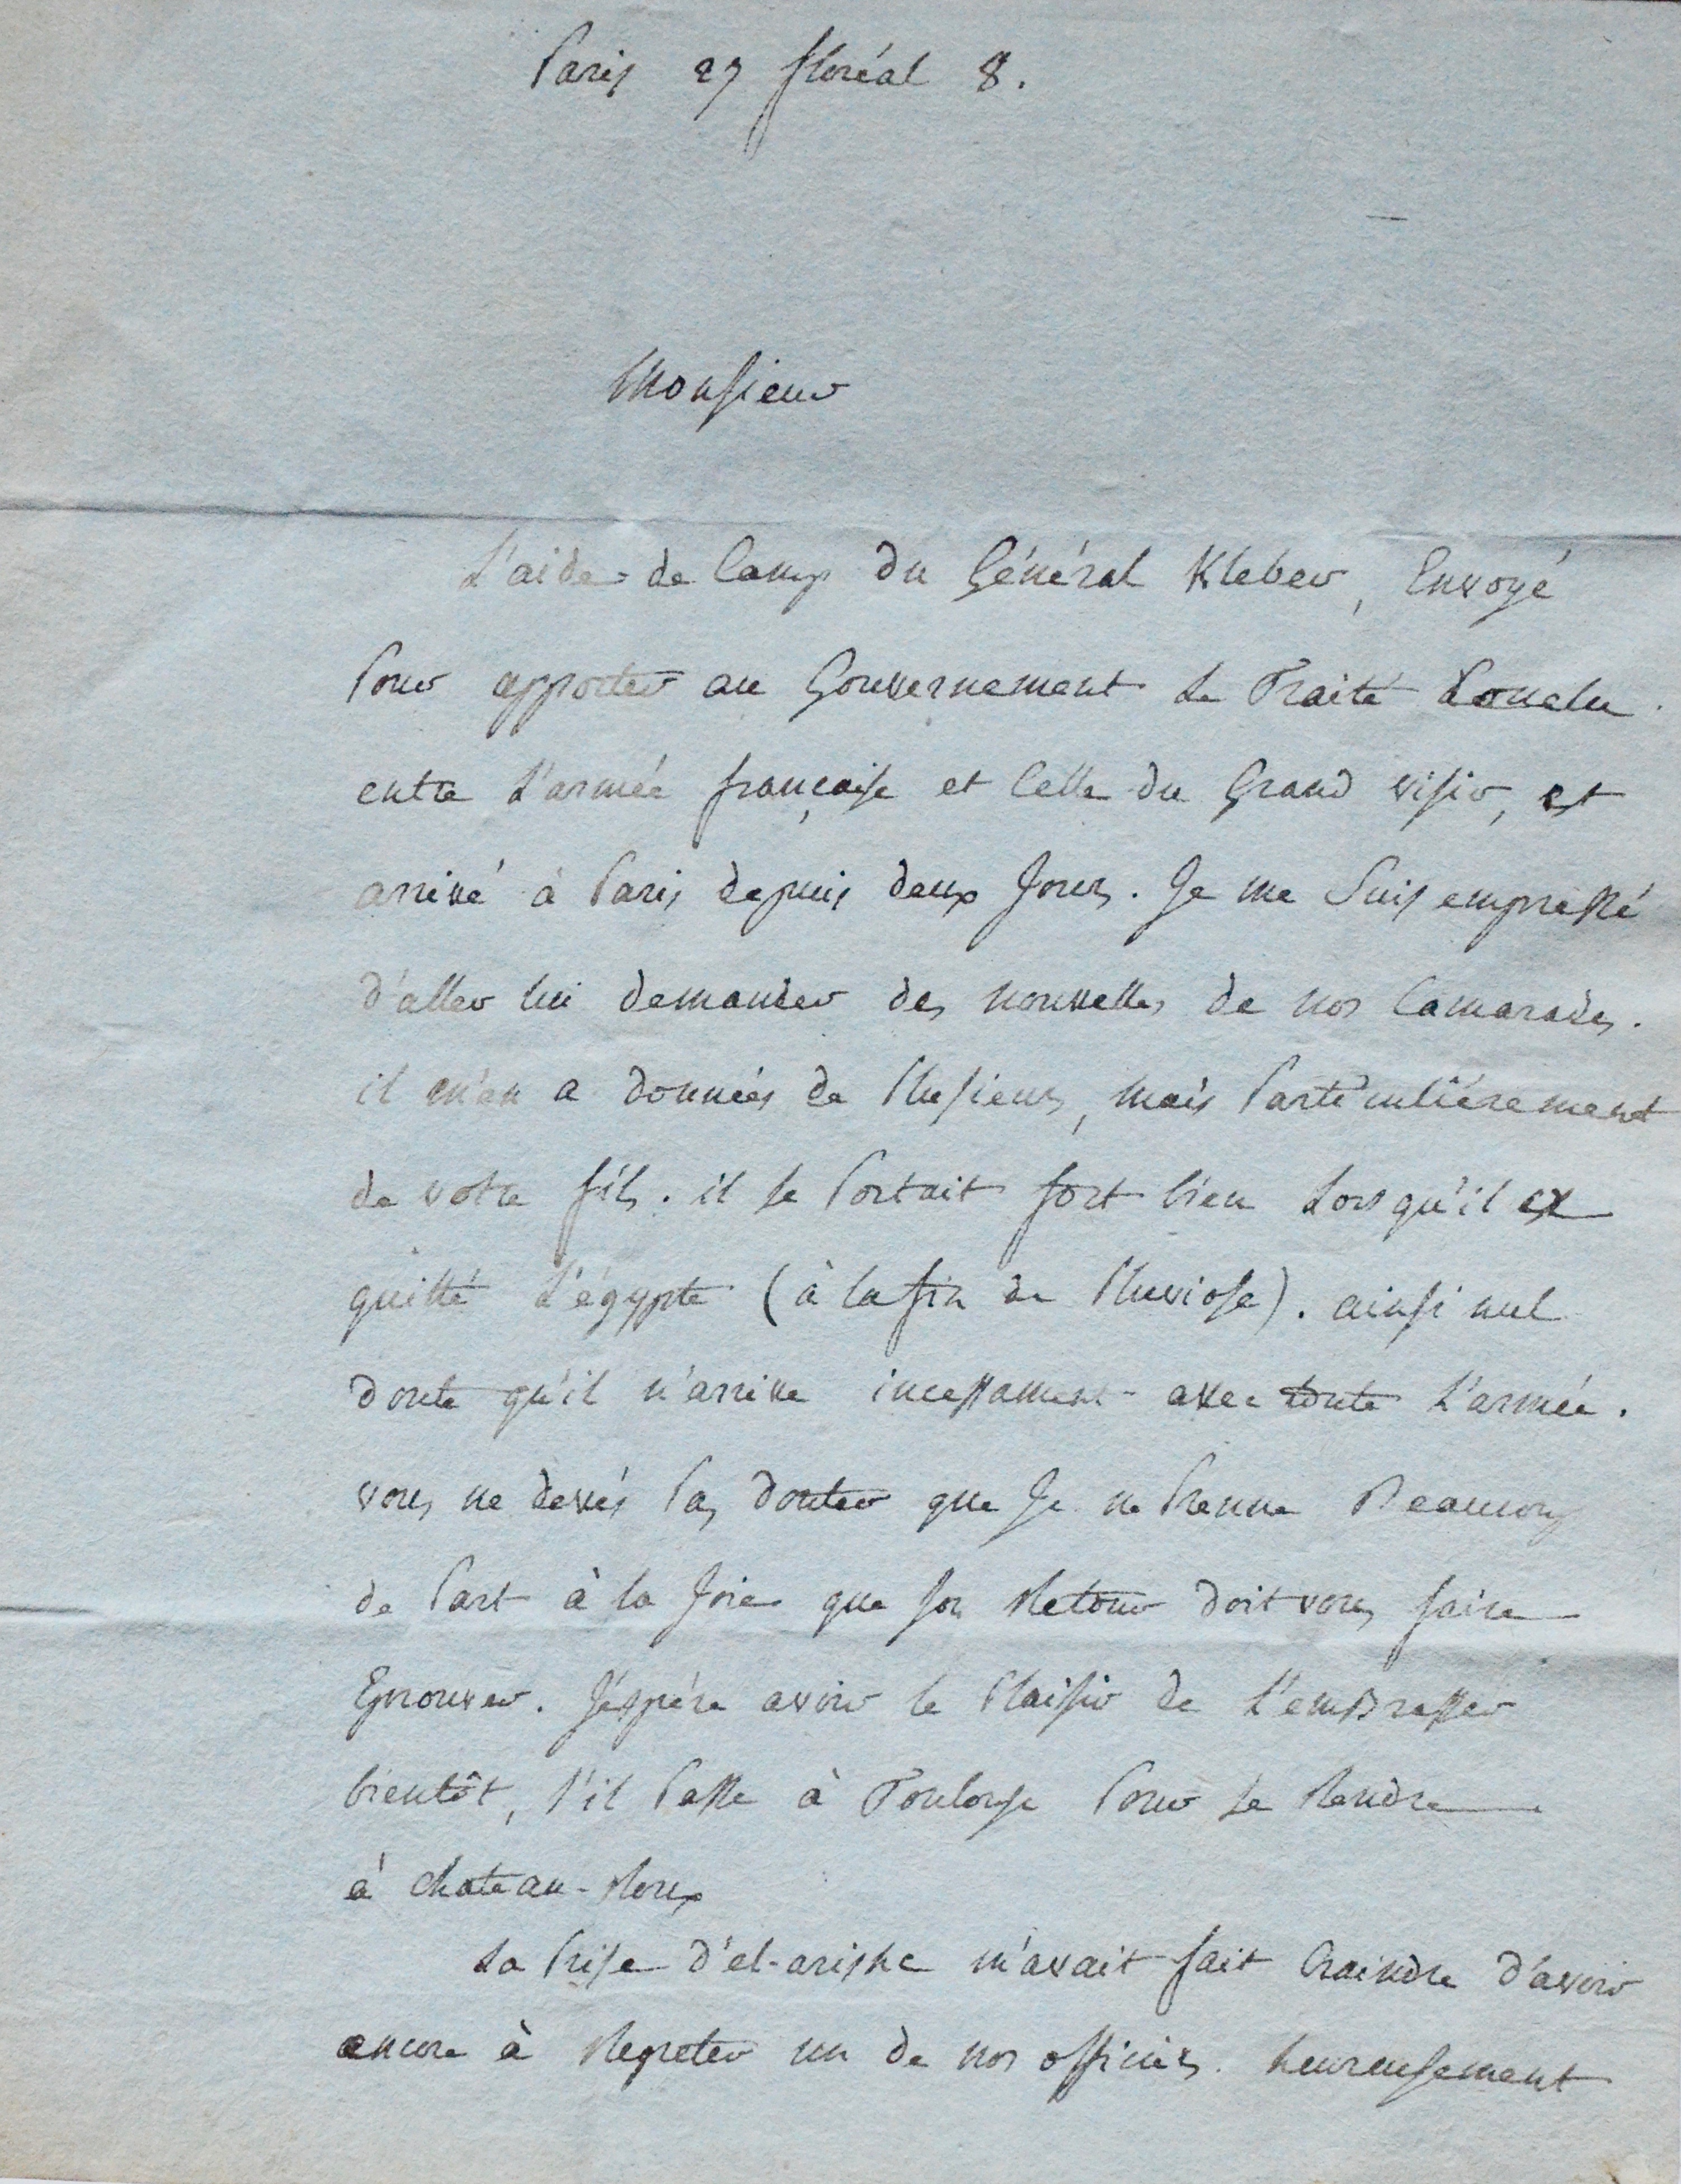 Paris 27 floréal 8.
Monsieur
L'aide-de Camp du Général Kleber, Envoyé
Pour apporter au Gouvernement le Traité Conclu
entre l'armée française et Celle du Grand visir, est
arrivé à Paris depuis deux Jours. Je me Suis empressé
d'aller lui demander des nouvelles de nos Camarades.
il m'en a données de Plusieurs, mais Particuliérement
de votre fils. il se Portait fort bien Lorsqu'il a
quitté L'égypte (à la fin de Pluviose). ainsi nul
doute qu'il n'arrive incessament avec toute L'armée.
vous ne devés Pas douter que Je ne Prenne Beaucoup
de Part à la Joie que son Retour doit vous faire
Eprouver. J'éspére avoir le Plaisir de L'embrasser
bientôt, s'il Passe à Toulouse Pour se Rendre
à chateau-Roux
La Prise d'el-arishe m'avait fait Craindre d'avoir
encore à Regreter un de nos officiers. heureusement